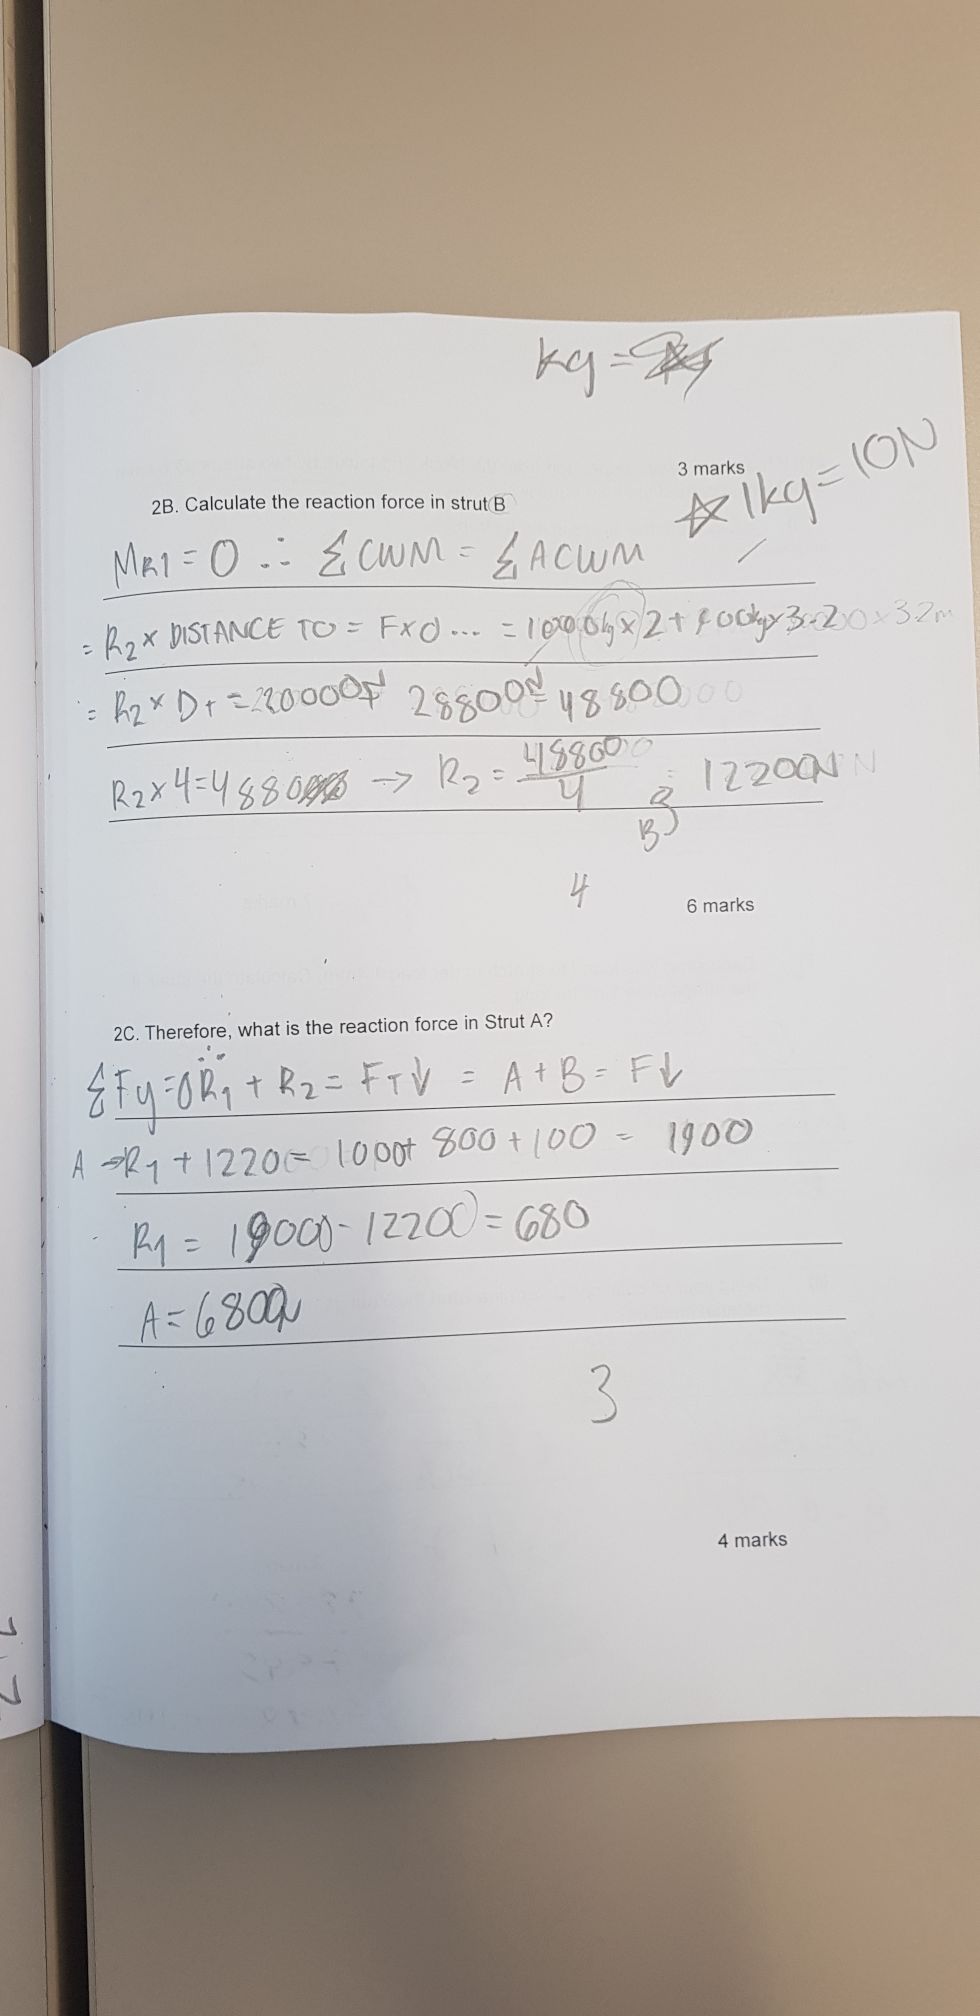 kg =
3 marks
☆ 1kg = 10N
2B. Calculate the reaction force in strut B
MR1 = 0 ∴ ΣCWM = ΣACWM
= R2 x DISTANCE TO = FXD... = 1000 kg x 2 + 900kg x 3.20 x 3.2m
= R2 x DT = 20000N 28800N = 48800
R2 x 4 = 48800 → R2 = 48800 / 4 = 12200N
B
4
6 marks
2C. Therefore, what is the reaction force in Strut A?
ΣFy = 0 ∴ R1 + R2 = FT↓ = A + B = F↓
A → R1 + 1220 = 1000 + 800 + 100 = 1900
R1 = 19000 - 12200 = 680
A = 6800N
3
4 marks